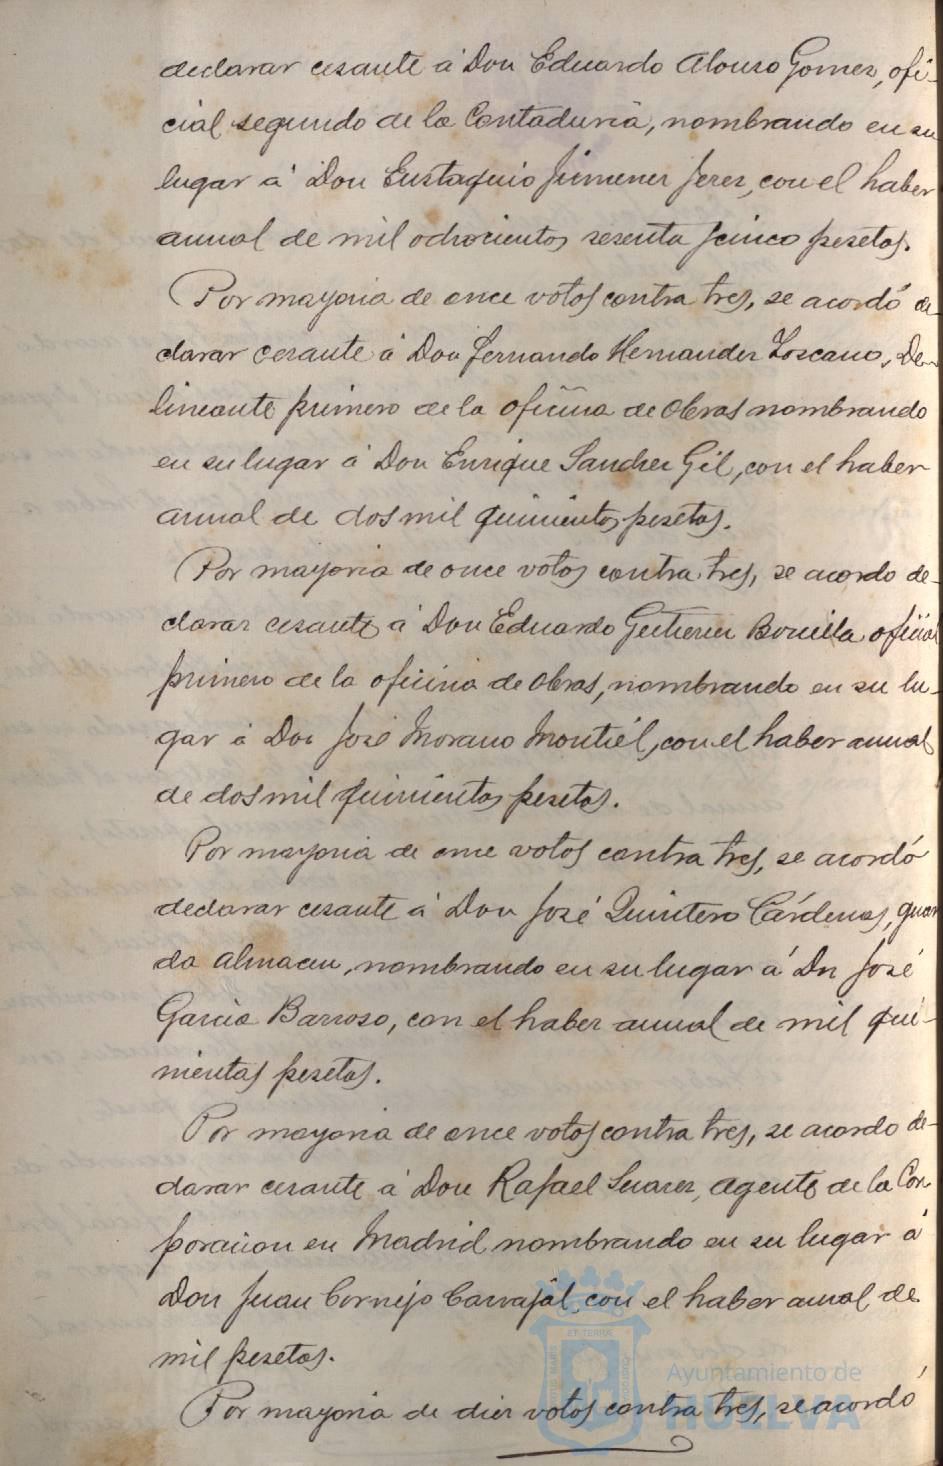 declarar cesante á Don Eduardo Alonso Gomez, ofi-
cial segundo de la Contaduria, nombrando en su
lugar á Don Eustaquio Jimenez Jerez, con el haber
anual de mil ochocientos sesenta y cinco pesetas.
Por mayoria de once votos contra tres, se acordó de-
clarar cesante á Don Fernando Hernandez Toscano, De-
lineante primero de la oficina de Obras nombrando
en su lugar á Don Enrique Sanchez Gil, con el haber
anual de dos mil quinientos pesetas.
Por mayoria de once votos contra tres, se acordo de-
clarar cesante á Don Eduardo Gutierrez Bonilla oficial
primero de la oficina de Obras, nombrando en su lu-
gar á Don José Morano Montiél, con el haber anual
de dos mil quinientas pesetas.
Por mayoria de once votos contra tres, se acordó
declarar cesante á Don José Quintero Cárdenas, guar
da almacen, nombrando en su lugar á Dn José
Garcia Barroso, con el haber anual de mil qui-
nientas pesetas.
Por mayoria de once votos contra tres, se acordo de-
clarar cesante á Don Rafael Suarez, agente de la Cor
poracion en Madrid nombrando en su lugar á
Don Juan Cornejo Carvajál, con el haber anual de
mil pesetas.
Por mayoria de diez votos contra tres, se acordó
Ayuntamiento de
HUELVA